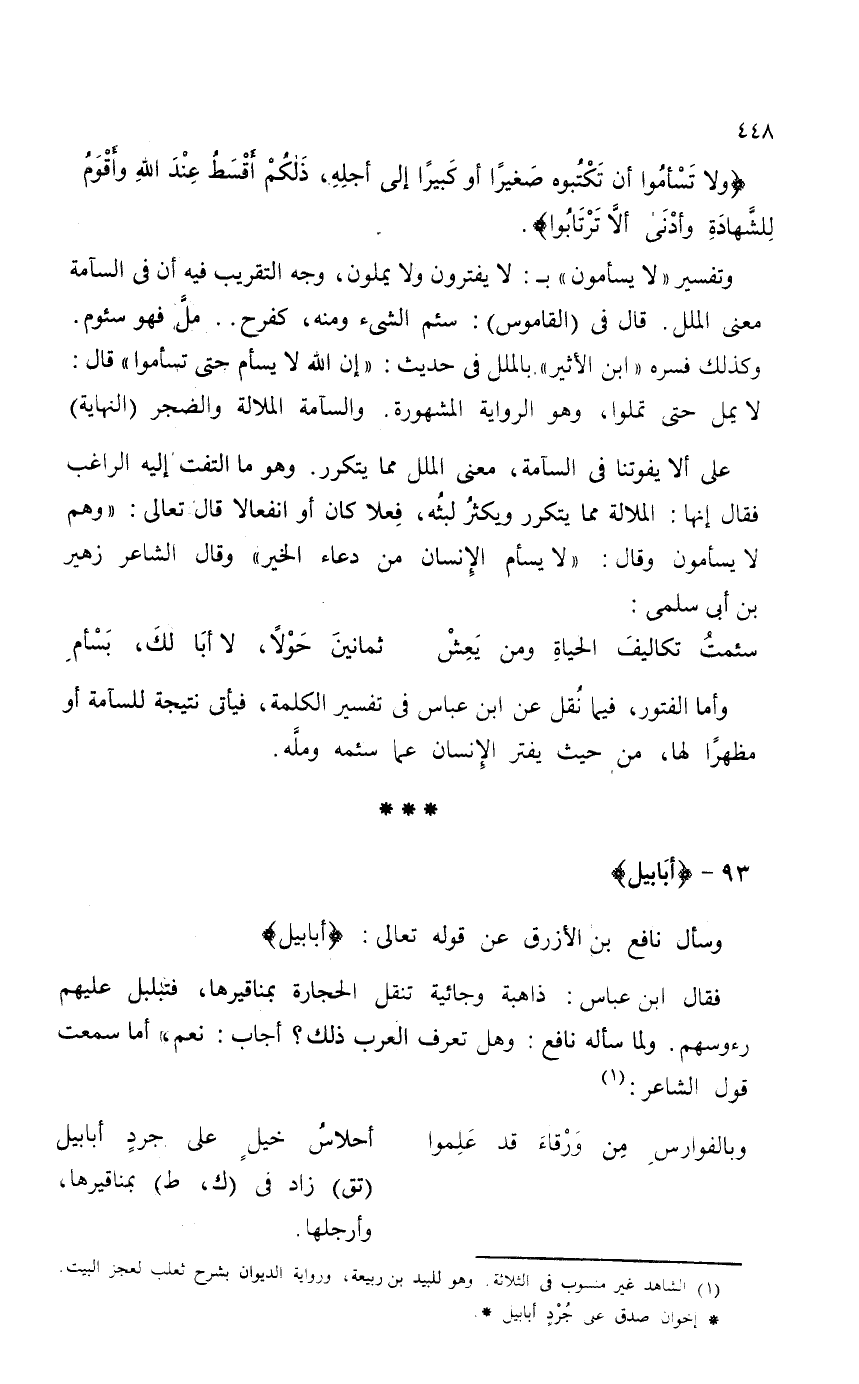 ٤٤٨
﴿ولا تَسْأمُوا أن تَكْتُبوه صَغيرًا أو كَبيرًا إلى أجلِهِ، ذَلٰكُمْ أَقْسَطُ عِنْدَ اللهِ وأَقْوَمُ
لِلشَّهادَةِ وأدْنَىٰ ألاَّ تَرْتَابُوا﴾.
وتفسير «لا يسأمون» بـ : لا يفترون ولا يملون، وجه التقريب فيه أن فى السآمة
معنى الملل. قال فى (القاموس) : سئم الشىء ومنه، كفرح.. ملَّ فهو سئوم.
وكذلك فسره «ابن الأثير» بالملل فى حديث : «إن الله لا يسأم حتى تسأموا» قال :
لا يمل حتى تملوا، وهو الرواية المشهورة. والسآمة الملالة والضجر (النهاية)
على ألا يفوتنا فى السآمة، معنى الملل مما يتكرر. وهو ما التفت إليه الراغب
فقال إنها : الملالة مما يتكرر ويكثرُ لبثُه، فِعلا كان أو انفعالا قال تعالى : «وهم
لا يسأمون وقال : «لا يسأم الإِنسان من دعاء الخير» وقال الشاعر زهير
بن أبى سلمى :
سئمتُ تكاليفَ الحياةِ ومن يَعِشْ ثمانينَ حَوْلاً، لا أبَا لكَ، يَسْأم
وأما الفتور، فيما نُقل عن ابن عباس فى تفسير الكلمة، فيأتى نتيجة للسآمة أو
مظهرًا لها، من حيث يفتر الإِنسان عما سئمه وملَّه.
* * *
٩٣ - ﴿أبَابيل﴾
وسأل نافع بن الأزرق عن قوله تعالى : ﴿أبابيل﴾
فقال ابن عباس : ذاهبة وجائية تنقل الحجارة بمناقيرها، فتبلبل عليهم
رءوسهم. ولما سأله نافع : وهل تعرف العرب ذلك؟ أجاب : نعم،» أما سمعت
قول الشاعر :(١)
وبالفوارسِ مِن وَرْقاءَ قد عَلِموا أحلاسُ خيلٍ على جردٍ أبابيل
(تق) زاد فى (ك، ط) بمناقيرها،
وأرجلها.
(١) الشاهد غير منسوب فى الثلاثة. وهو للبيد بن ربيعة، ورواية الديوان بشرح ثعلب لعجز البيت.
* إخوان صدق على جُرْدٍ أبابيل *.